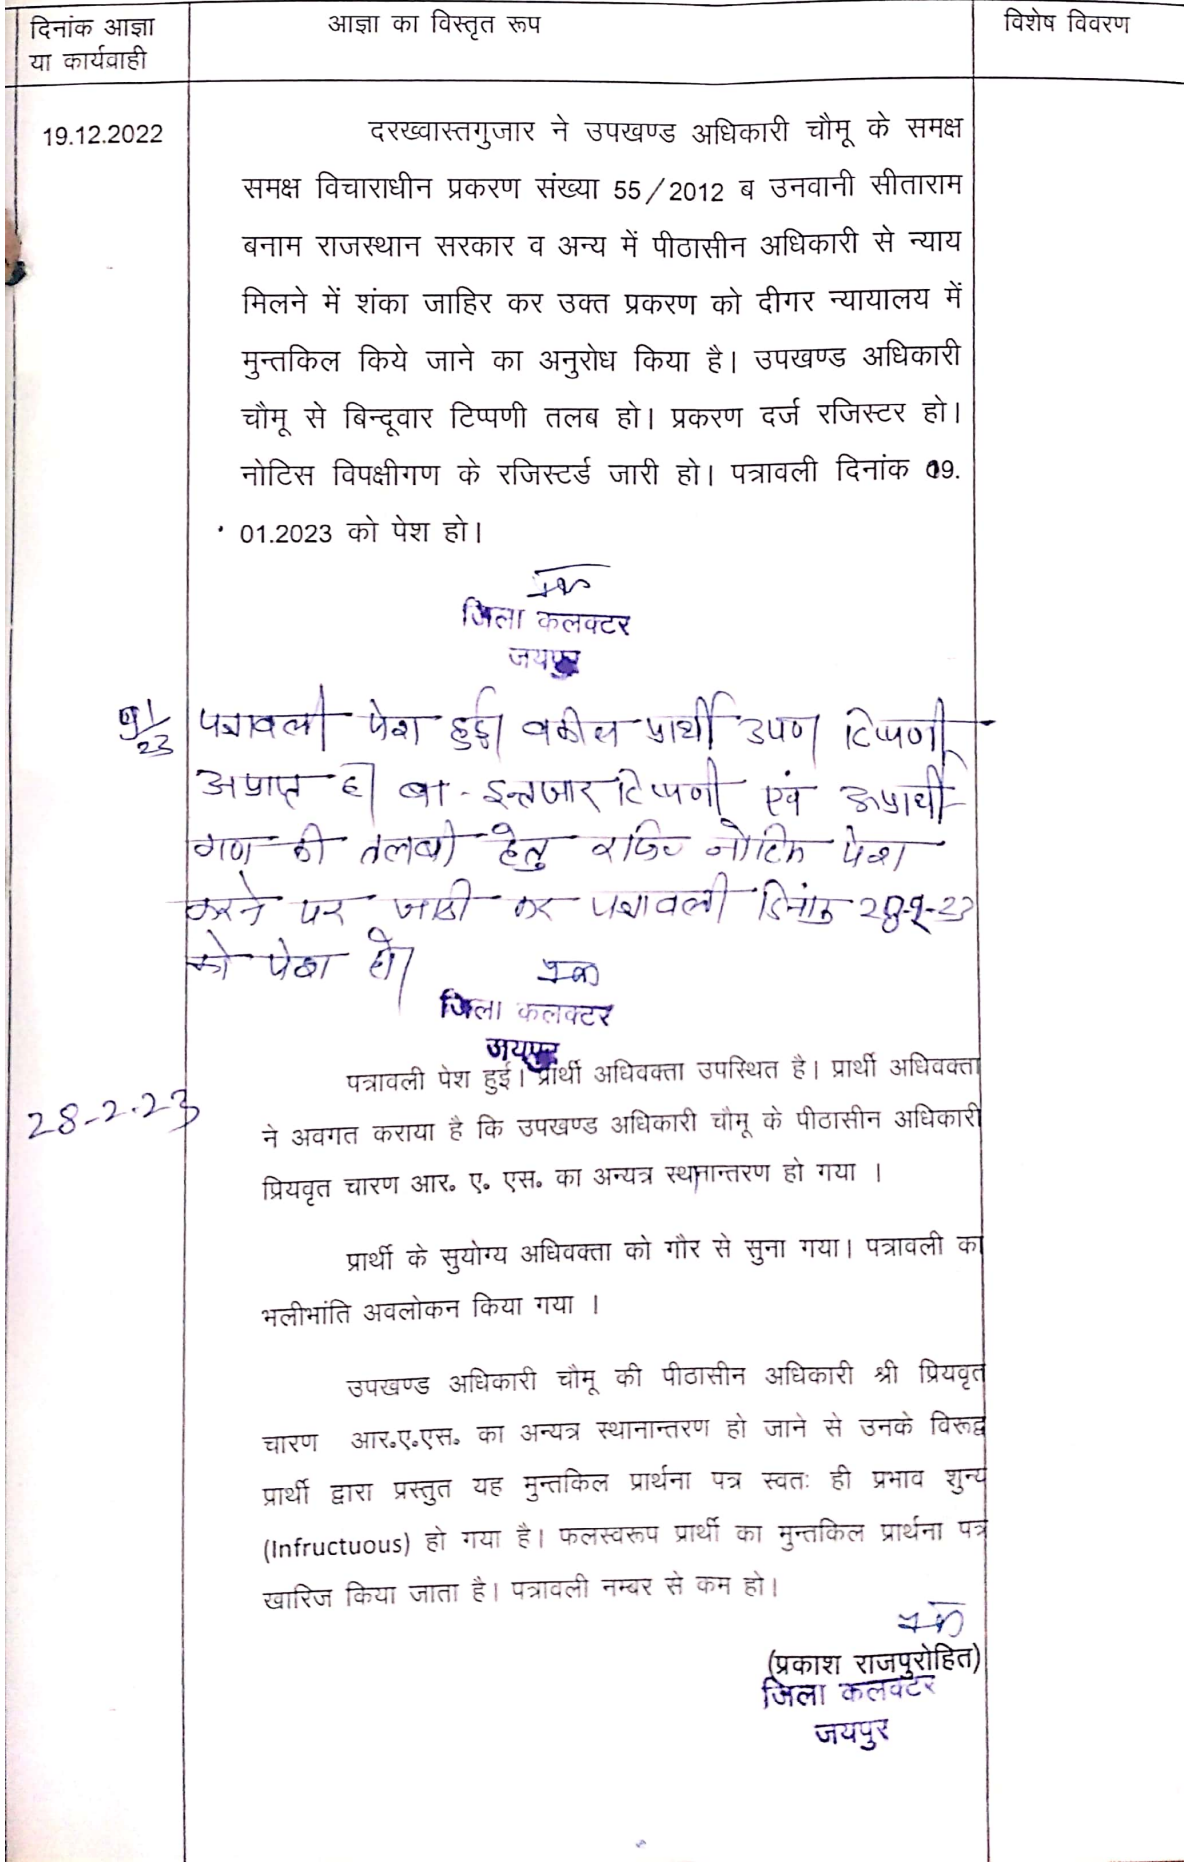 दिनांक आज्ञा
या कार्यवाही
आज्ञा का विस्तृत रूप
विशेष विवरण
19.12.2022
दरख्वास्तगुजार ने उपखण्ड अधिकारी चौमू के समक्ष
समक्ष विचाराधीन प्रकरण संख्या 55/2012 ब उनवानी सीताराम
बनाम राजस्थान सरकार व अन्य में पीठासीन अधिकारी से न्याय
मिलने में शंका जाहिर कर उक्त प्रकरण को दीगर न्यायालय में
मुन्तकिल किये जाने का अनुरोध किया है। उपखण्ड अधिकारी
चौमू से बिन्दूवार टिप्पणी तलब हो। प्रकरण दर्ज रजिस्टर हो।
नोटिस विपक्षीगण के रजिस्टर्ड जारी हो। पत्रावली दिनांक 09.
01.2023 को पेश हो।
जिला कलक्टर
जयपुर
9/1/23 पत्रावली पेश हुई। वकील प्रार्थी उप० टिप्पणी
अप्राप्त है। बा-इन्तजार टिप्पणी एवं अप्रार्थी
गण की तलबी हेतु रजि० नोटिस पेश
करने पर जारी कर पत्रावली दिनांक 28-2-23
को पेश हो।
जिला कलक्टर
जयपुर
28-2-23
पत्रावली पेश हुई। प्रार्थी अधिवक्ता उपस्थित है। प्रार्थी अधिवक्ता
ने अवगत कराया है कि उपखण्ड अधिकारी चौमू के पीठासीन अधिकारी
प्रियवृत चारण आर० ए. एस० का अन्यत्र स्थानान्तरण हो गया ।
प्रार्थी के सुयोग्य अधिवक्ता को गौर से सुना गया। पत्रावली का
भलीभांति अवलोकन किया गया ।
उपखण्ड अधिकारी चौमू की पीठासीन अधिकारी श्री प्रियवृत
चारण आर.ए.एस. का अन्यत्र स्थानान्तरण हो जाने से उनके विरूद्व
प्रार्थी द्वारा प्रस्तुत यह मुन्तकिल प्रार्थना पत्र स्वतः ही प्रभाव शुन्य
(Infructuous) हो गया है। फलस्वरूप प्रार्थी का मुन्तकिल प्रार्थना पत्र
खारिज किया जाता है। पत्रावली नम्बर से कम हो।
(प्रकाश राजपुरोहित)
जिला कलक्टर
जयपुर